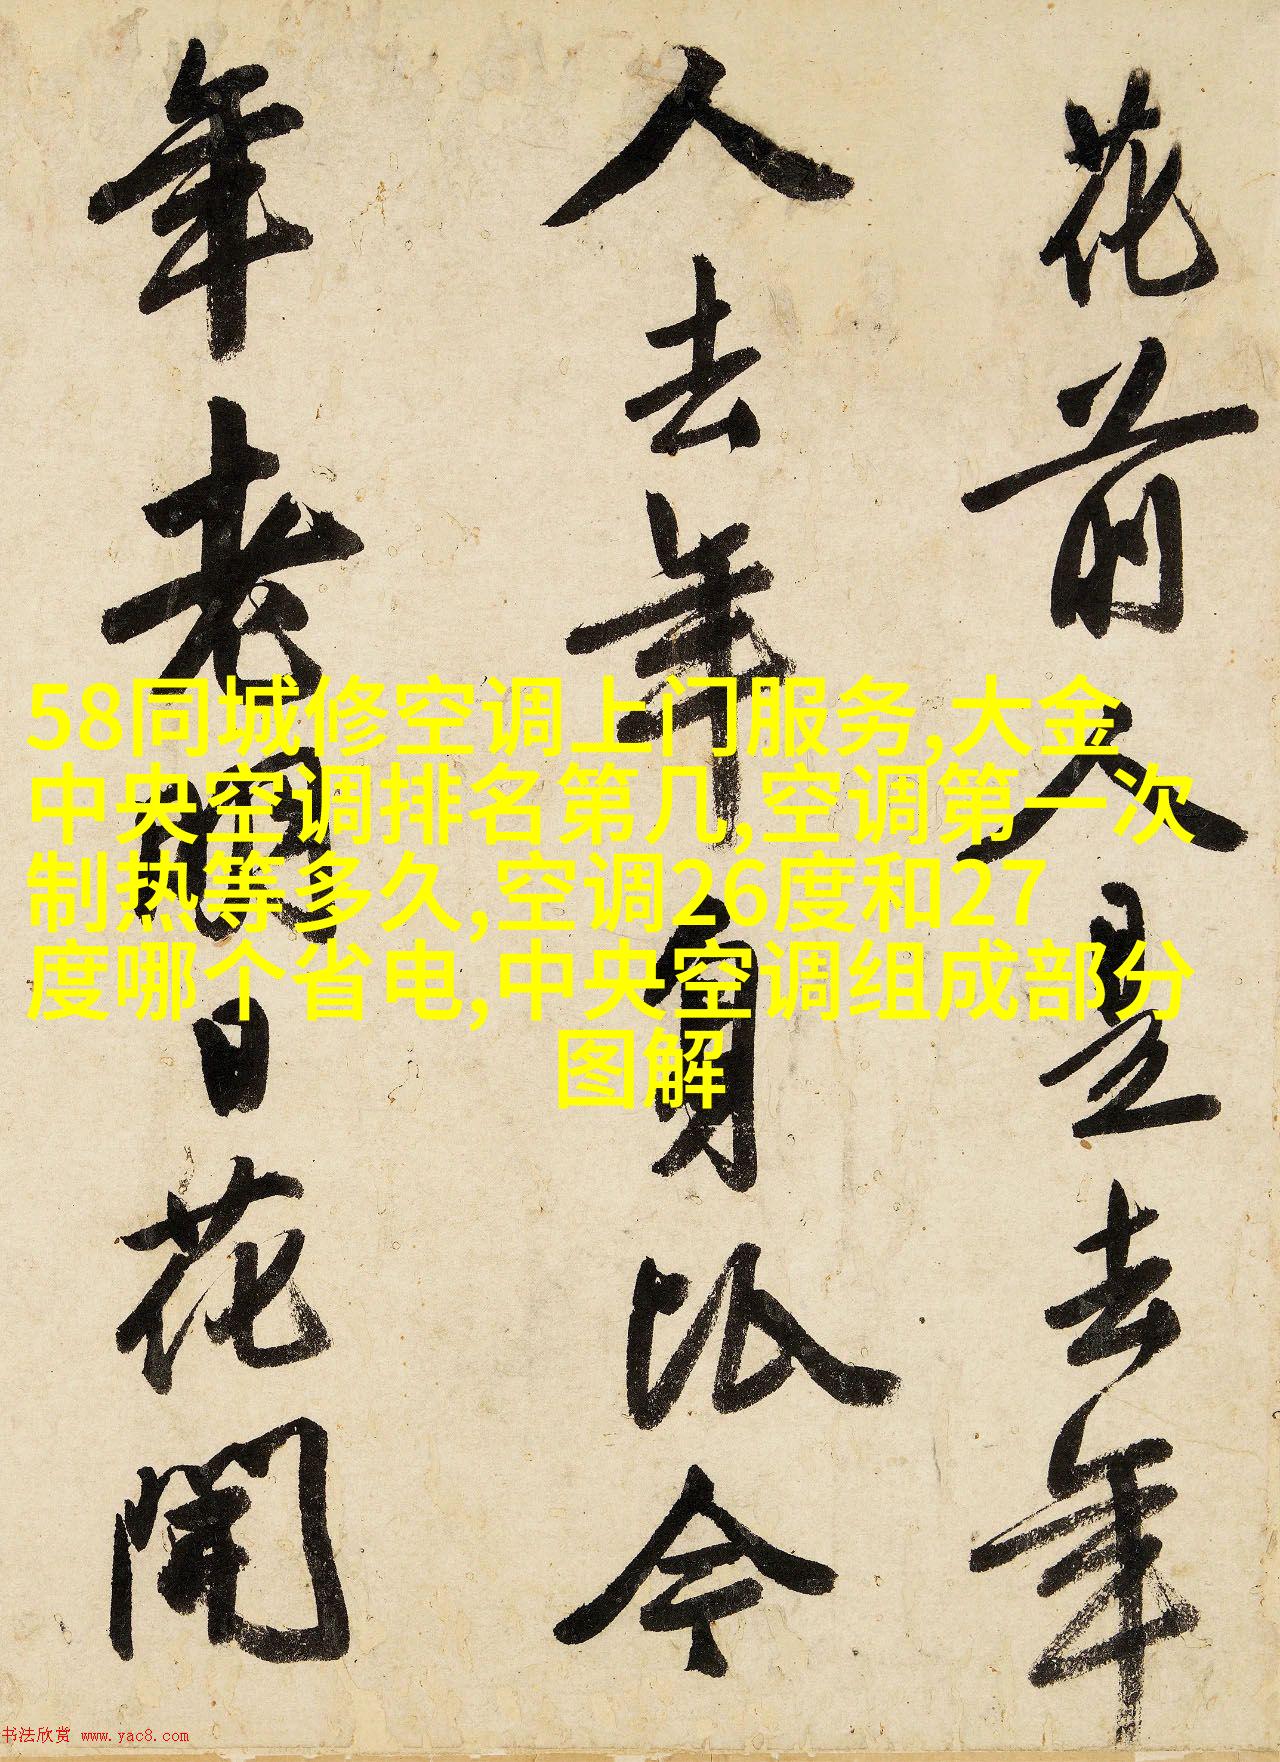 花前人是去年
人去年身比今
年老明日花開
58同城修空调上门服务,大金
中央空调排名第几,空调第一次
制热等多久,空调26度和27
度哪个省电,中央空调组成部分
图解
书法欣赏 www.yac8.com